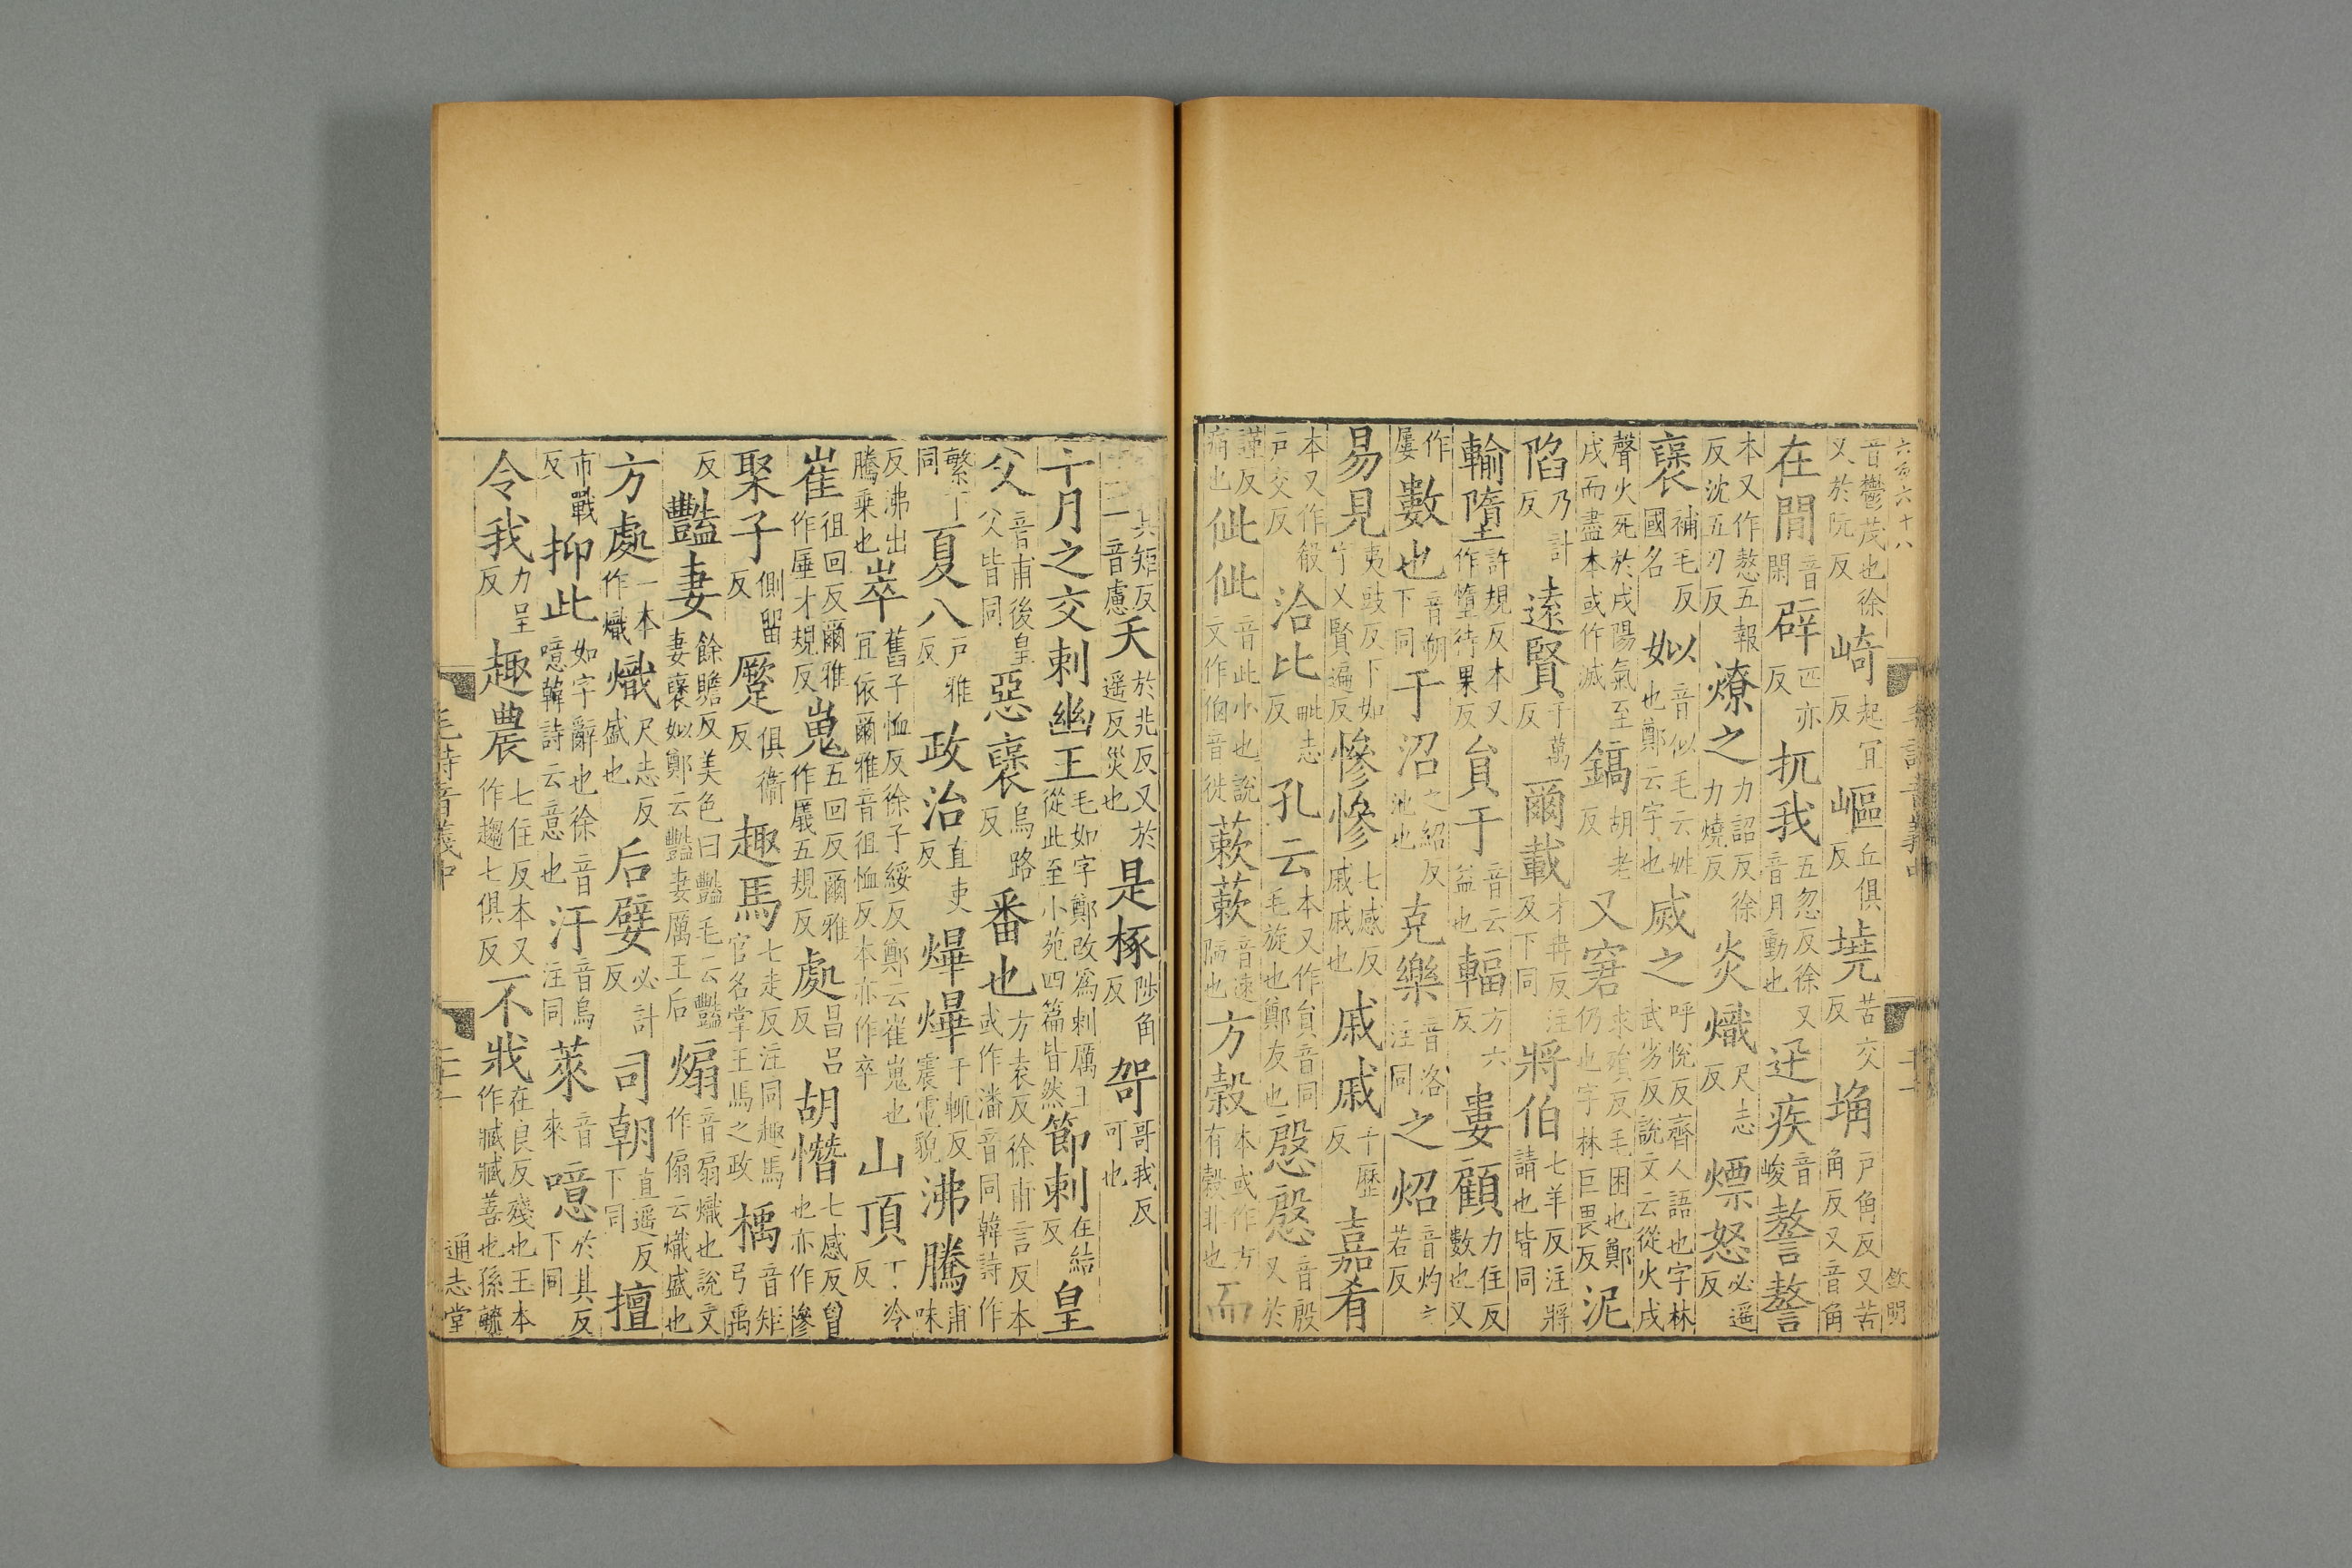 音鬱茂也徐又於阮反崎起宜反嶇丘俱反墝苦交反埆戸角反又苦角反又音角
在閒音閑辟匹亦反扤我五忽反徐又音月動也迋疾音峻謷謷
本又作熬五報反沈五刃反燎之力詔反徐力燒反炎熾尺志反熛怒必遥反
襃國名補毛反姒音似毛云姓也鄭云字也烕之呼悅反齊人語也字林武劣反說文云從火戌
聲火死於戌陽氣至戌而盡本或作滅鎬胡老反又窘求殞反毛困也鄭仍也字林巨畏反泥
陷乃計反遠賢于萬反爾載才再反注及下同將伯七羊反注將請也皆同
輸墮許規反本又作墮待果反員于音云益也輻方六反婁顧力住反數也又
作屢數也音朔下同于沼之紹反池也克樂音洛注同之炤音灼之若反
易見夷豉反下如字又賢遍反慘慘七感反戚戚也戚戚千歷反嘉肴
本又作殽戸交反洽比毗志反孔云本又作員音同毛旋也鄭友也慇慇音殷又於
謹反痛也佌佌音此小也說文作㑌音徙蔌蔌音速陋也方穀本或作方有穀非也而
夭於兆反又於遥反災也是椓陟角反哿哥我反可也
十月之交刺幽王毛如字鄭改爲刺厲王從此至小苑四篇皆然節刺在結反皇
父音甫後皇父皆同惡襃烏路反番也方袁反徐甫言反本或作潘音同韓詩作
繁丁同夏八戸雅反政治直吏反爗爗于輒反震電貌沸騰甫味
反沸出騰乗也崒舊子恤反徐子綏反鄭云崔嵬也宜依爾雅音徂恤反本亦作卒山頂丁冷反
崔徂回反爾雅作厜才規反嵬五回反爾雅作㕒五規反處昌呂反胡憯七感反曾也亦作慘
聚子側留反蹷俱衞反趣馬七走反注同趣馬官名掌王馬之政楀音矩弓禹
反豔妻餘贍反美色曰豔毛云豔妻襃姒鄭云豔妻厲王后煽音扇熾也說文作傓云熾盛也
方處一本作熾熾尺志反盛也后嬖必計反司朝直遥反下同擅
市戰反抑此如字辭也徐音噫韓詩云意也汙音烏注同萊音來噫於其反下同
令我力呈反趣農七住反本又作趨七俱反不戕在良反殘也王本作臧臧善也孫毓
毛詩音義中
通志堂